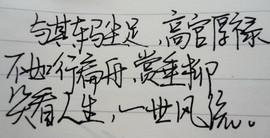 与其车马尘足,高官厚禄
不如行扁舟,赏垂柳
笑看人生,一世风流。